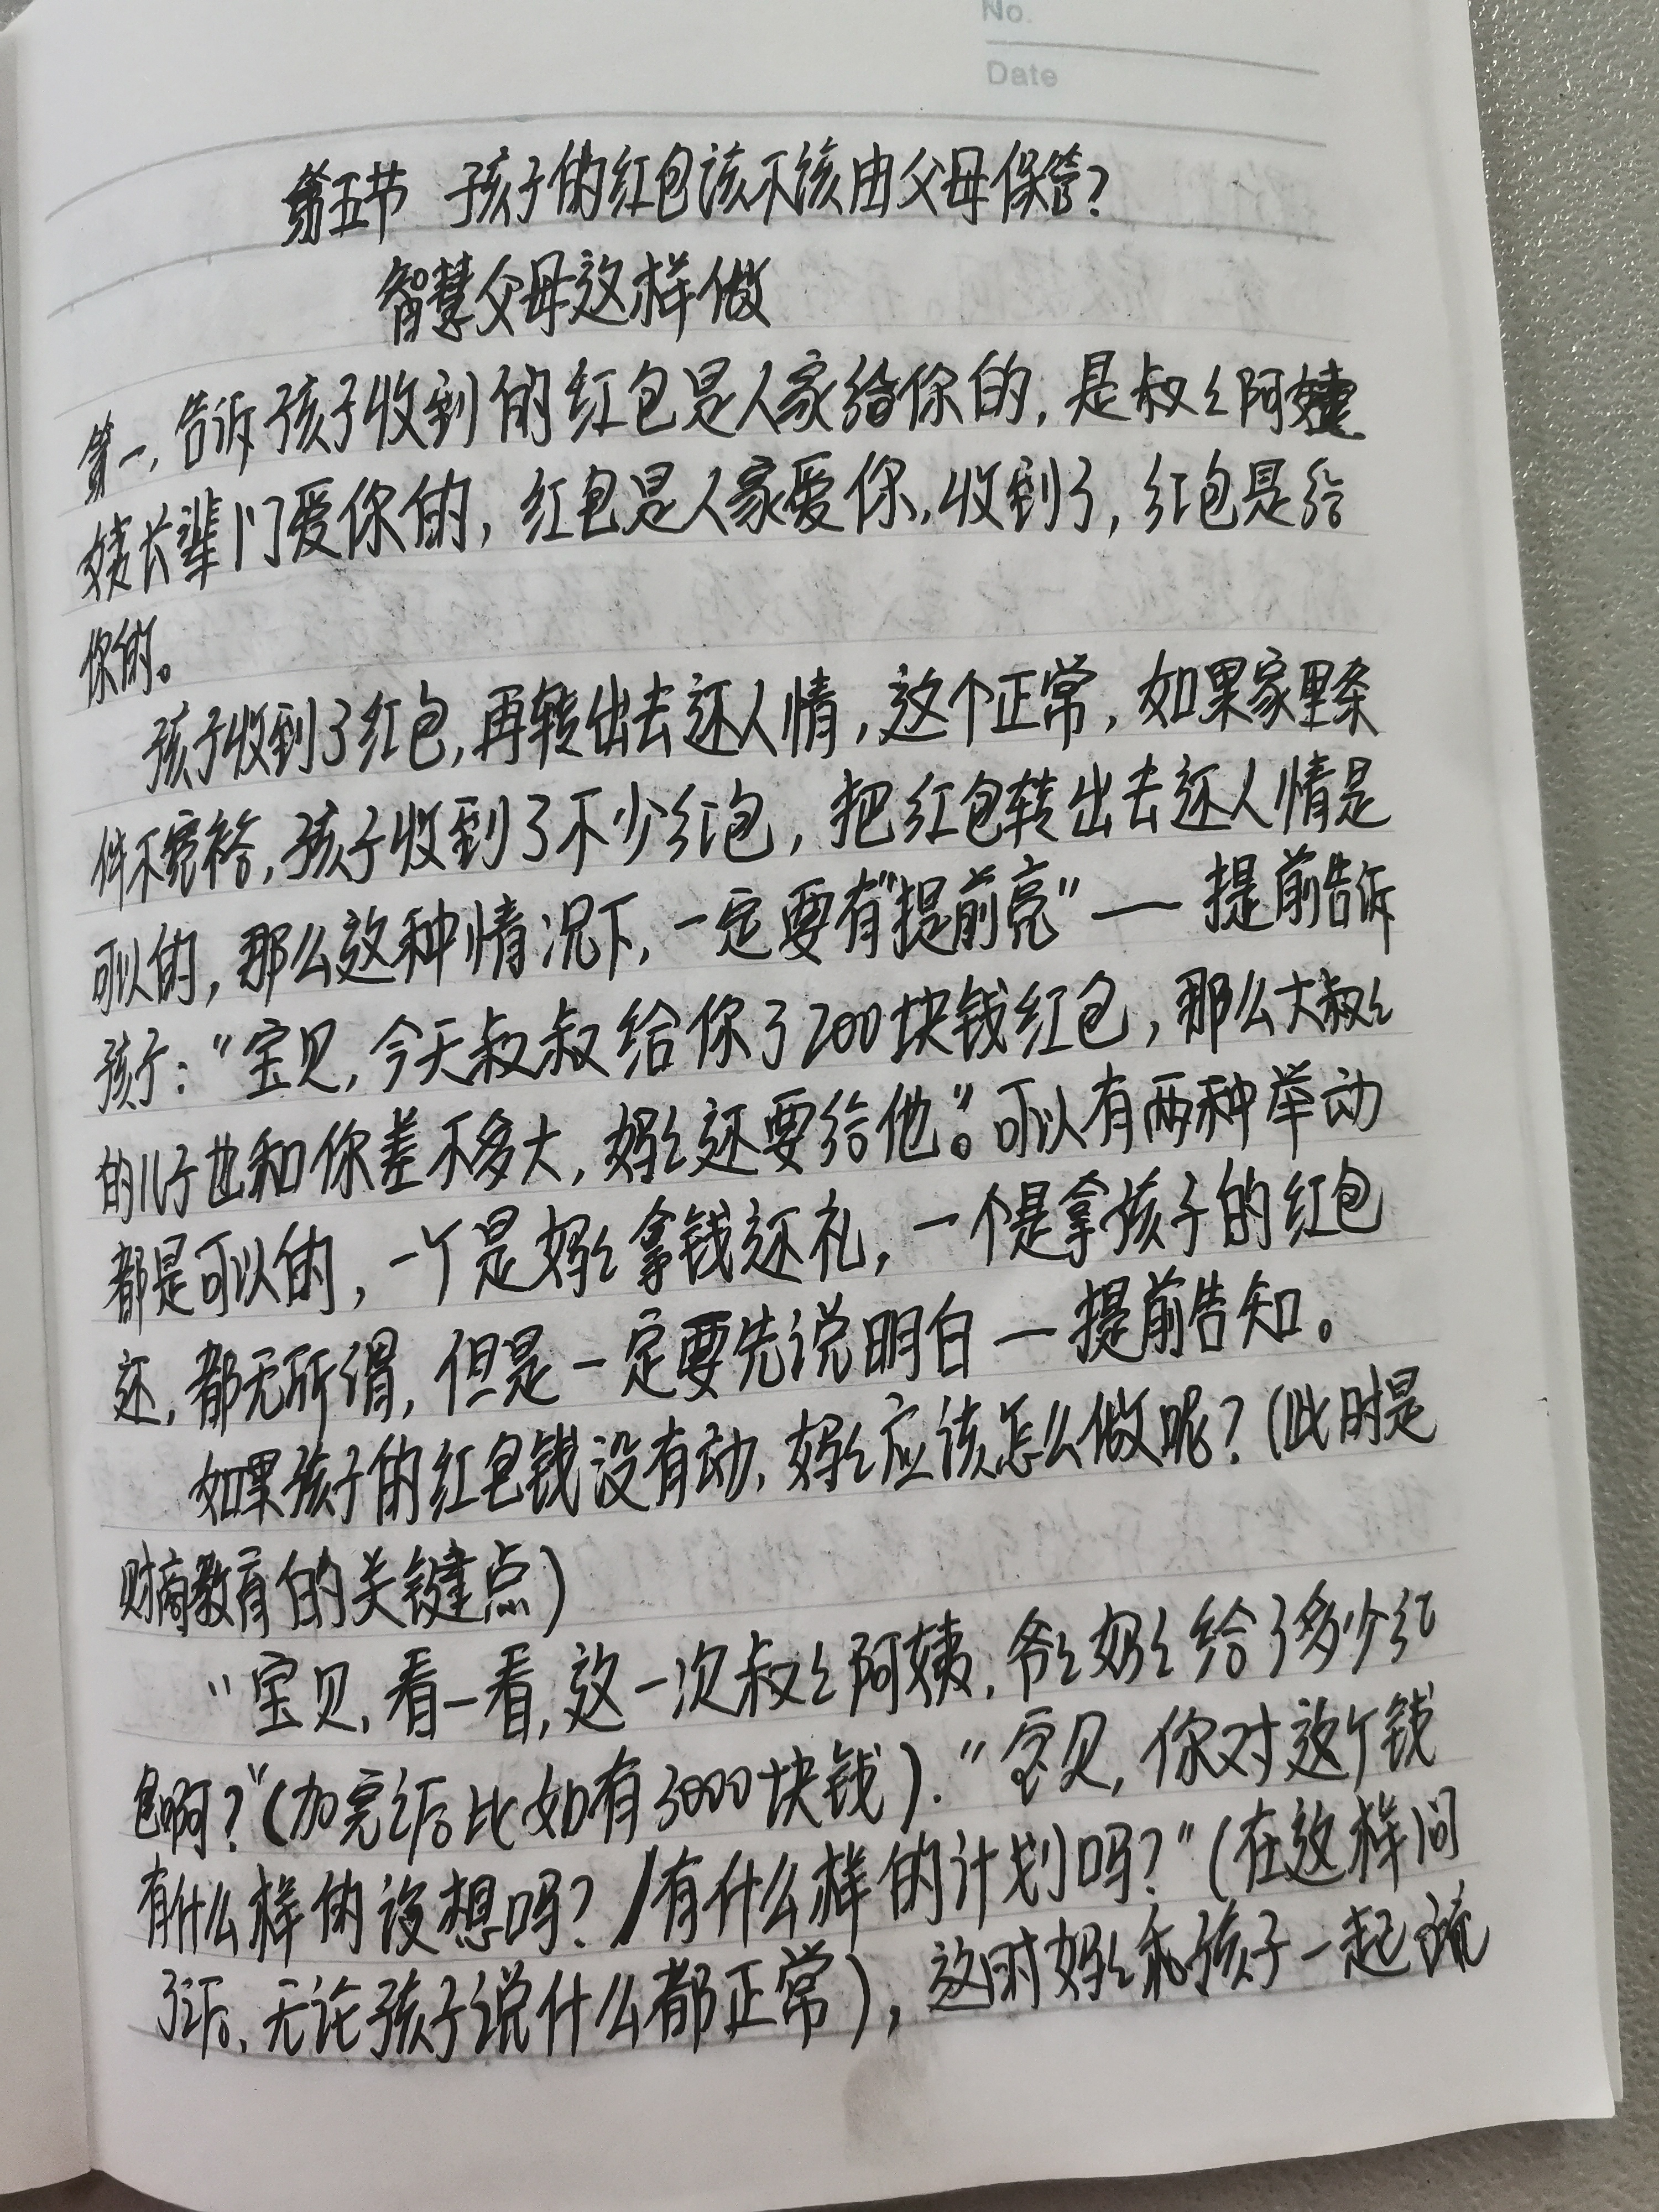 No.
Date
第五节 孩子的红包该不该由父母保管?
智慧父母这样做
第一,告诉孩子收到的红包是人家给你的,是叔々阿姨
姨长辈们爱你的,红包是人家爱你,收到了,红包是给
你的。
孩子收到了红包,再转出去还人情,这个正常,如果家里条
件不宽裕,孩子收到了不少红包,把红包转出去还人情是
可以的,那么这种情况下,一定要有“提前亮”——提前告诉
孩子:“宝贝,今天叔叔给你了200块钱红包,那么大叔々
的儿子也和你差不多大,妈々还要给他”。可以有两种举动
都是可以的,一个是妈々拿钱还礼,一个是拿孩子的红包
还,都无所谓,但是一定要先说明白—提前告知。
如果孩子的红包钱没有动,妈々应该怎么做呢?(此时是
财商教育的关键点)
“宝贝,看一看,这一次叔々阿姨,爷々奶々给了多少红
包啊?”(加完后比如有3000块钱).“宝贝,你对这个钱
有什么样的设想吗?/有什么样的计划吗?”(在这样问
了后、无论孩子说什么都正常),这时妈々和孩子一起